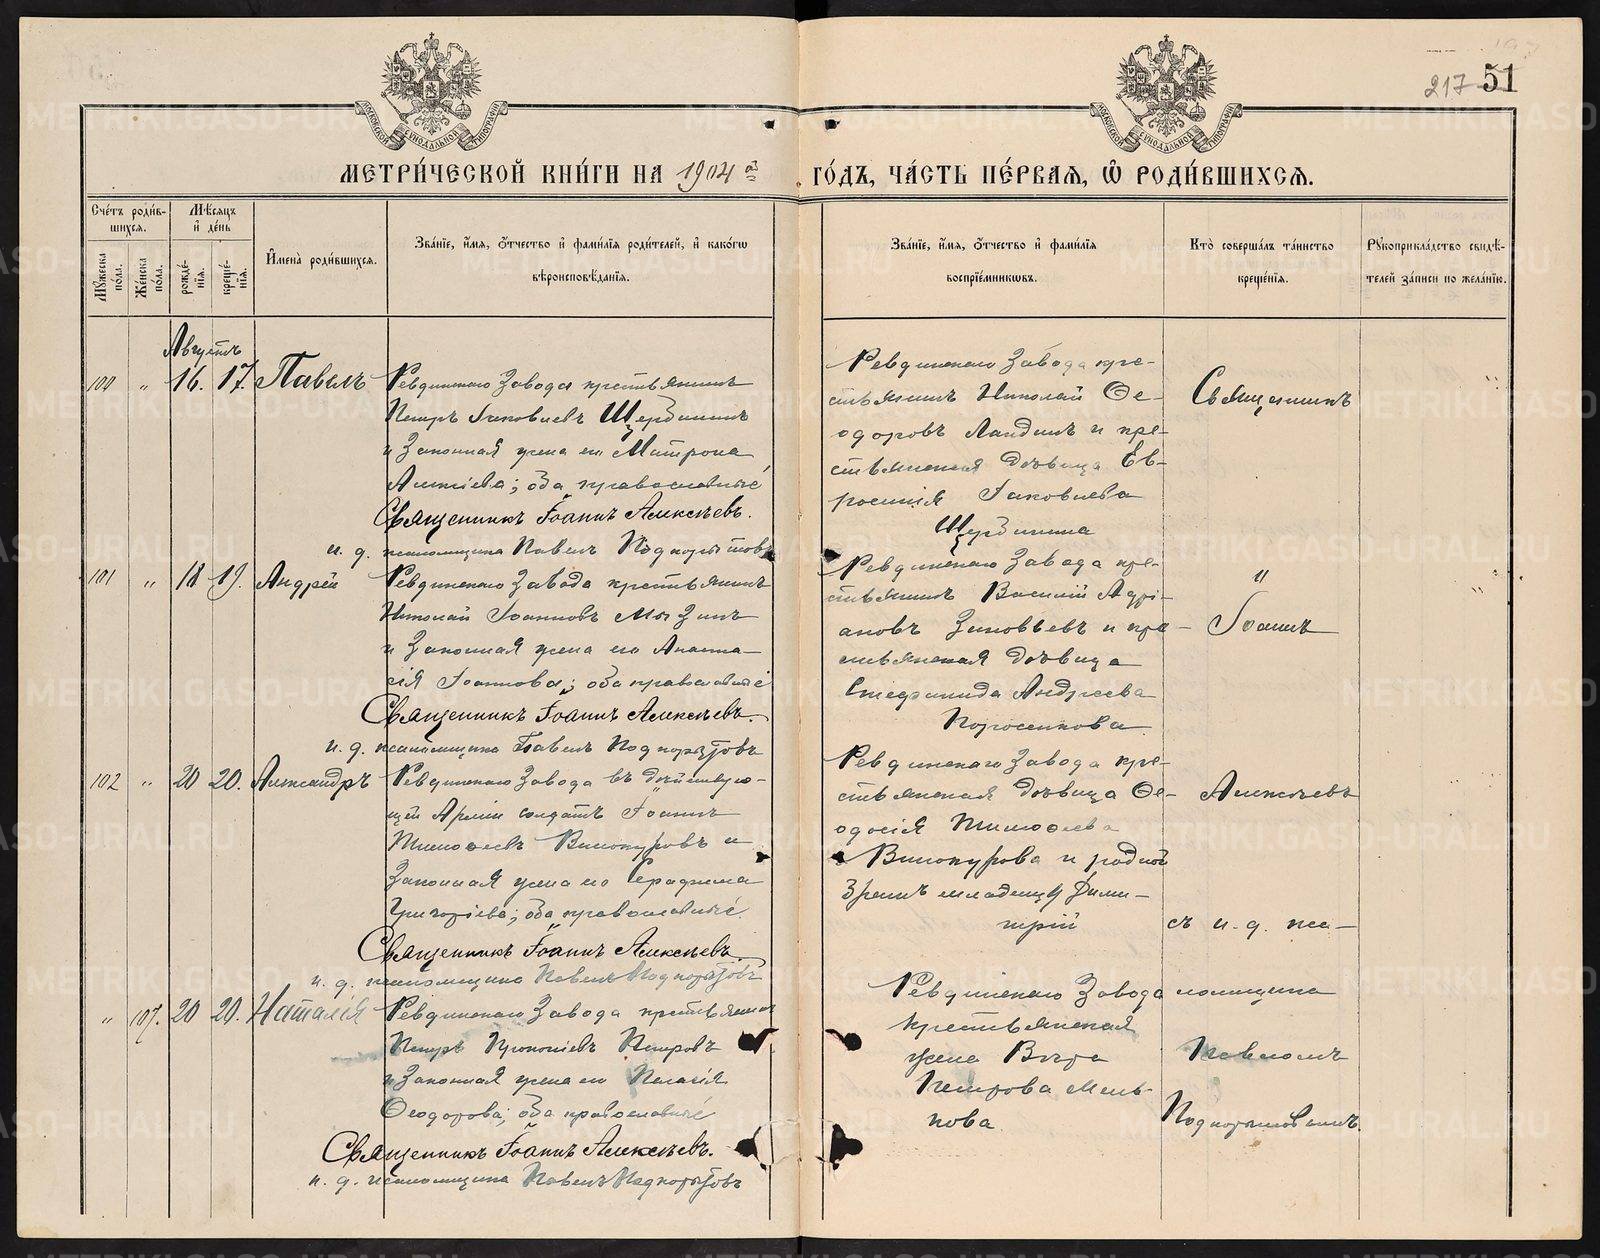 217 51
МЕТРИ́ЧЕСКОЙ КНИ́ГИ НА 1904й ГО́ДЪ, ЧА́СТЬ ПЕ́РВАЯ, Ѡ҆ РОДИ́ВШИХСЯ.
Сче́тъ роди́в-
шихся.
Му́жеска по́ла.
Же́нска по́ла.
Мѣ́сяцъ и҆ де́нь
рожде́-
нїя.
креще́-
нїя.
И҆мена̀ роди́вшихся.
Зва́нїе, и҆́мя, ѻ҆́тчество и҆ фами́лїя роди́телей, и҆ како́гѡ
вѣроисповѣ́данїя.
Зва́нїе, и҆́мя, ѻ҆́тчество и҆ фами́лїя
воспрїе́мникѡвъ.
Кто̀ соверша́лъ та́инство
креще́нїя.
Рꙋкоприкла́дство свидѣ́-
телей за́писи по жела́нїю.
Августъ
100 " 16. 17. Павелъ
Ревдинскаго Завода крестьянинъ
Петръ Іаковлевъ Щербининъ
и Законная жена его Матрона
Алексіева; оба православные
Священникъ Іоаннъ Алексѣевъ.
и. д. псаломщика Павелъ Подкорытовъ
Ревдинскаго Завода кре-
стьянинъ Николай Ѳе-
одоровъ Лапдинъ и кре-
стьянская дѣвица Ев-
росинія Іаковлева
Щербинина
Священникъ
101 " 18 19. Андрей
Ревдинскаго Завода крестьянинъ
Николай Іоанновъ Мызинъ
и Законная жена его Анаста-
сія Іоаннова; оба православные
Священникъ Іоаннъ Алексѣевъ.
и. д. псаломщика Павелъ Подкорытовъ
Ревдинскаго Завода кре-
стьянинъ Василій Адрі-
ановъ Зиновьевъ и кре-
стьянская дѣвица
Стефанида Андреева
"
Іоаннъ
102 " 20 20. Александръ
Ревдинскаго Завода въ дѣйствую-
щей Арміи солдатъ Іоаннъ
Тимоѳеевъ Винокуровъ и
Законная жена его Серафима
Григоріева; оба православные.
Священникъ Іоаннъ Алексѣевъ.
и. д. псаломщика Павелъ Подкорытовъ
Ревдинскаго Завода кре-
стьянская дѣвица Ѳе-
одосія Тимоѳеева
Винокурова и родной
братъ младенцу Дими-
трій
Алексѣевъ
съ и. д. пса-
" 107. 20 20. Наталія
Ревдинскаго Завода крестьянинъ
Петръ Прокопіевъ Петровъ
и Законная жена его Пелагія
Ѳеодорова; оба православные
Священникъ Іоаннъ Алексѣевъ.
и. д. псаломщика Павелъ Подкорытовъ
Ревдинскаго Завода
крестьянская
жена Вѣра
Петрова Мель-
кова.
ломщика
Павломъ
Подкорытовымъ.
METRIKI.GASO-URAL.RU